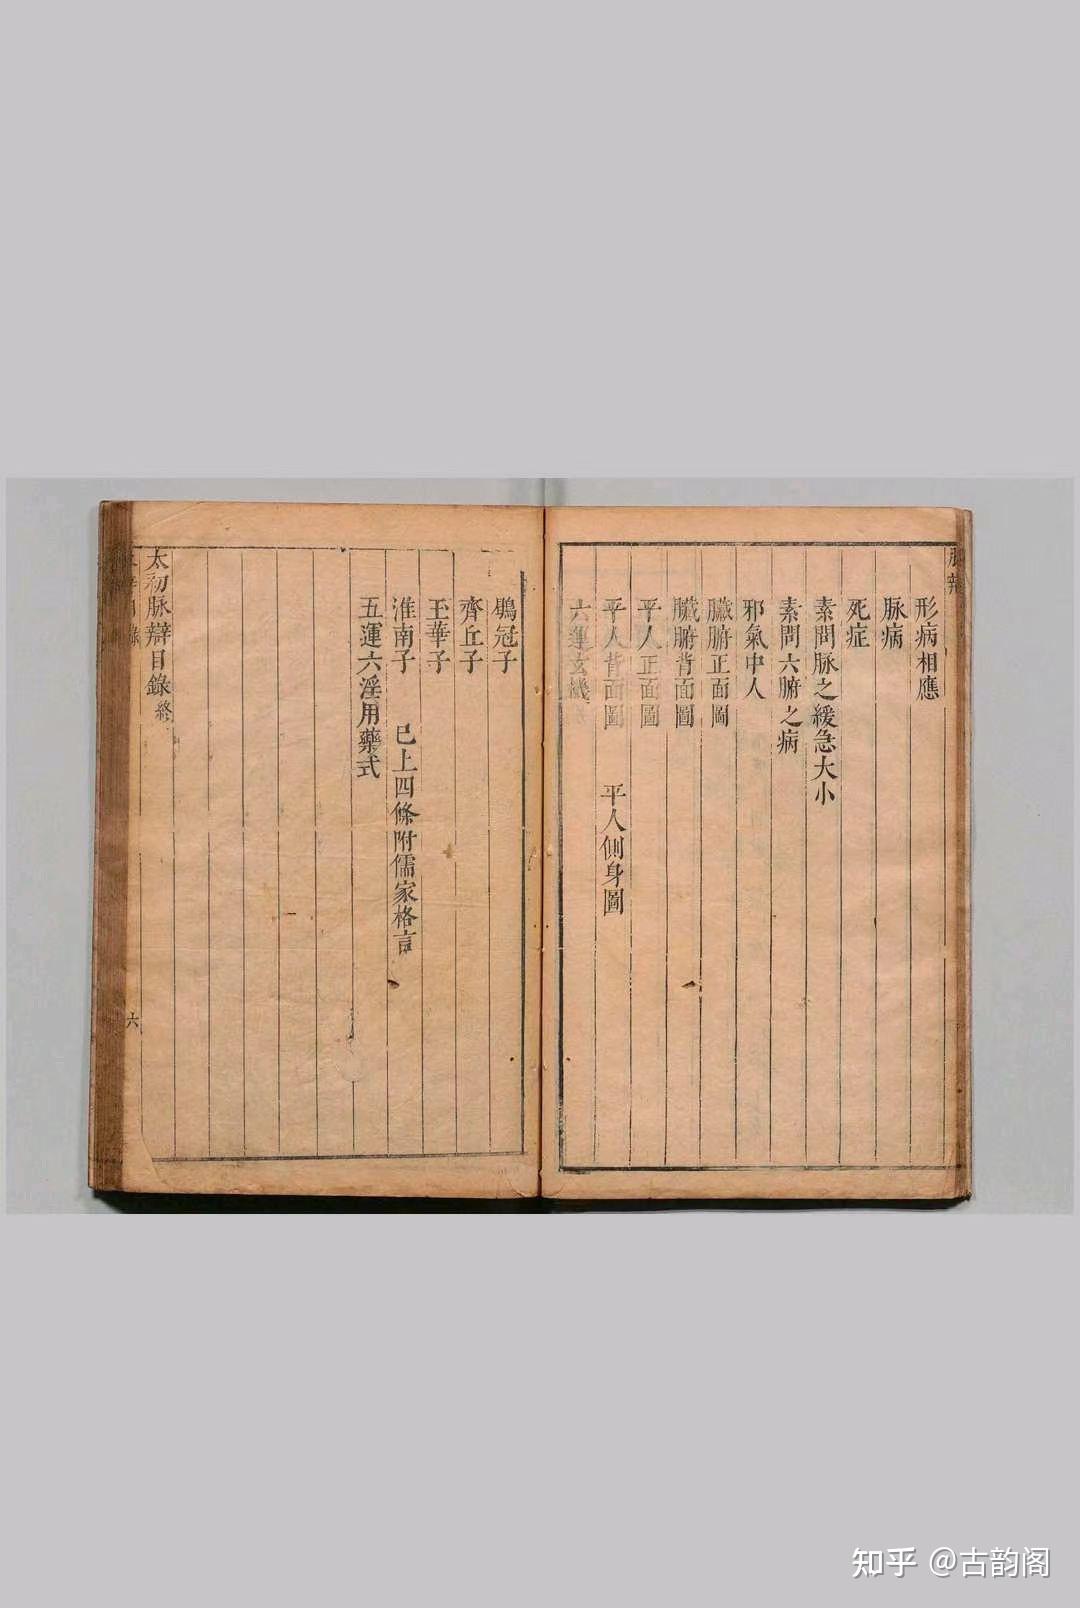 脉辯
形病相應
脉病
死症
素問脉之緩急大小
素問六腑之病
邪氣中人
臟腑正面圖
臟腑背面圖
平人正面圖
平人背面圖 平人側身圖
六運玄機
鶡冠子
齊丘子
玉華子
淮南子 已上四條附儒家格言
五運六淫用藥式
太初脉辯目錄終
六
知乎 @古韵阁